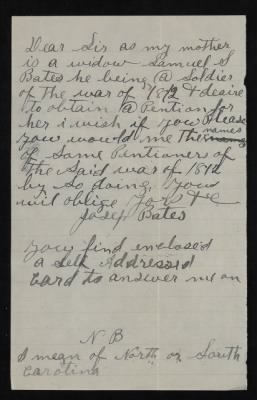 Dear Sir as my mother
is a widow Samuel S
Bates he being @ Soldier
of the war of 1812 & desire
to obtain @ Pention for
her i wish if you Please
you would me the names
of Some Pentioners of
the Said war of 1812
by so doing you
wil oblige yors &c
Josey Bates
you find enclosed
a Self Addressed
Card to answer me on
N B
I mean of North or South
Carolina